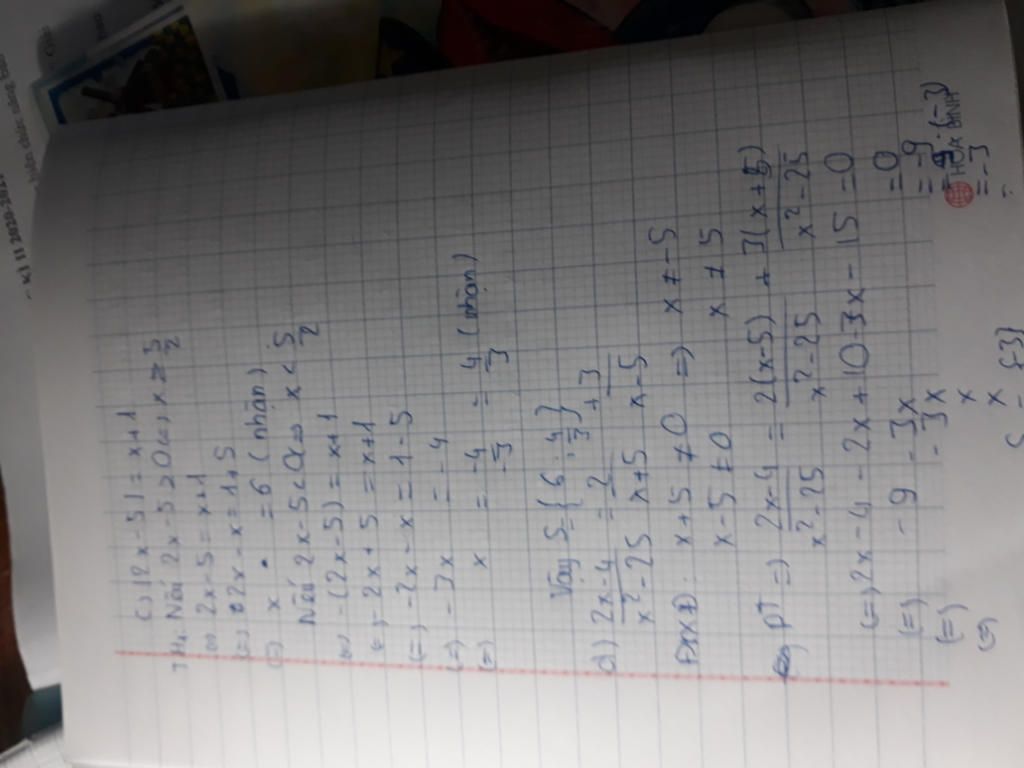 c) |2x-5| = x+1
TH1: Nếu 2x-5 ≥ 0 (=> x ≥ 5/2
(=) 2x-5 = x+1
(=) 2x-x = 1+5
(=) x = 6 (nhận)
Nếu 2x-5 < 0 (=> x < 5/2
(=) -(2x-5) = x+1
(=) -2x+5 = x+1
(=) -2x-x = 1-5
(=) -3x = -4
(=) x = -4/-3 = 4/3 (nhận)
Vậy S = {6; 4/3}
d) 2x-4/x²-25 = 2/x+5 + 3/x-5
ĐKXĐ: x+5 ≠ 0 => x ≠ -5
x-5 ≠ 0 x ≠ 5
PT => 2x-4/x²-25 = 2(x-5)/x²-25 + 3(x+5)/x²-25
(=) 2x-4-2x+10-3x-15 = 0
(=) -9 -3x = 0
(=) -3x = -9
(=) x = -9:(-3)
x = -3
HÒA BÌNH
KI II 2020-2021